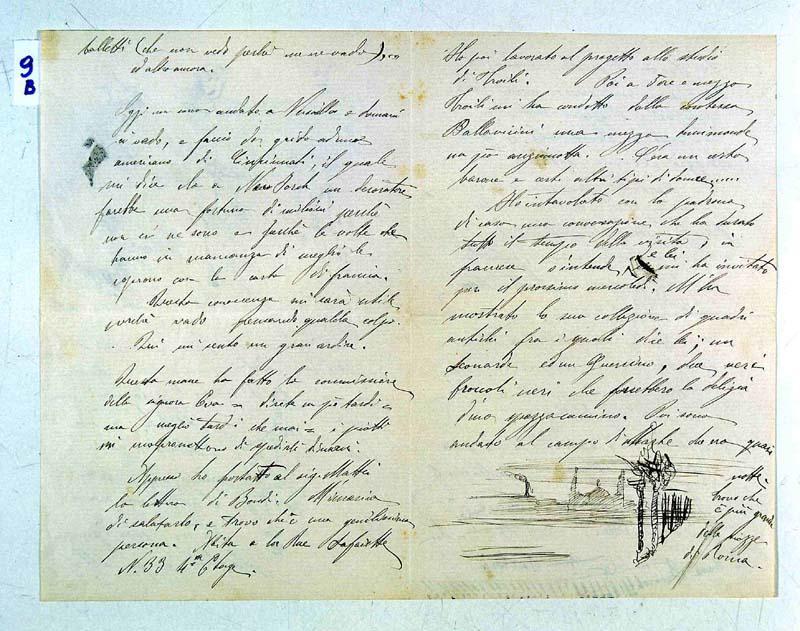 9
B
balletti (che non vedo perché me ne vado)....
ed altro ancora.
Oggi non sono andato a Versailles e domani
ci vado, e faccio
americano di Cincinnati il quale
mi dice che a Nuova York un decoratore
farebbe una fortuna di milioni perché
non ce ne sono e perché le volte che
hanno in mancanza di meglio le
coprono con la carta di francia.
Questa conoscenza mi sarà utile
perché vado pensando qualche colpo.
Qui mi sento un grande ardire.
Questa mane ho fatto le commissioni
della signora Eva = direte un po' tardi =
ma meglio tardi che mai = i
mi promettono di spedirli domani.
Appresso ho portato al sig. Mattei
la lettera di Bondi. M'incarica
di salutarlo, e trovo ch'è una gentilissima
persona. Abita a la Rue Lafaiette
N. 33 4me Etage
Ho poi lavorato al progetto allo studio
di Troili. Poi a dore e mezzo
Troili mi ha condotto dalla contessa
Pallavicini una mezza
un po' Era un certo
barone e certi altri tipi di donne....
Ho intavolato con la padrona
di casa una conversazione che ha durato
tutto il tempo della visita, in
francese s'intende, e lei mi ha invitato
per il prossimo mercoledì. M'ha
mostrato la sua collezione di quadri
antichi fra i quali dice lei, un
Leonardo ed un Guercino, due neri
broccoli neri che farebbero la delizia
d'uno spazzacamino. Poi sono
andato al campo di che era quasi
notte.
trovo che
è più grande
della piazza
di Roma.